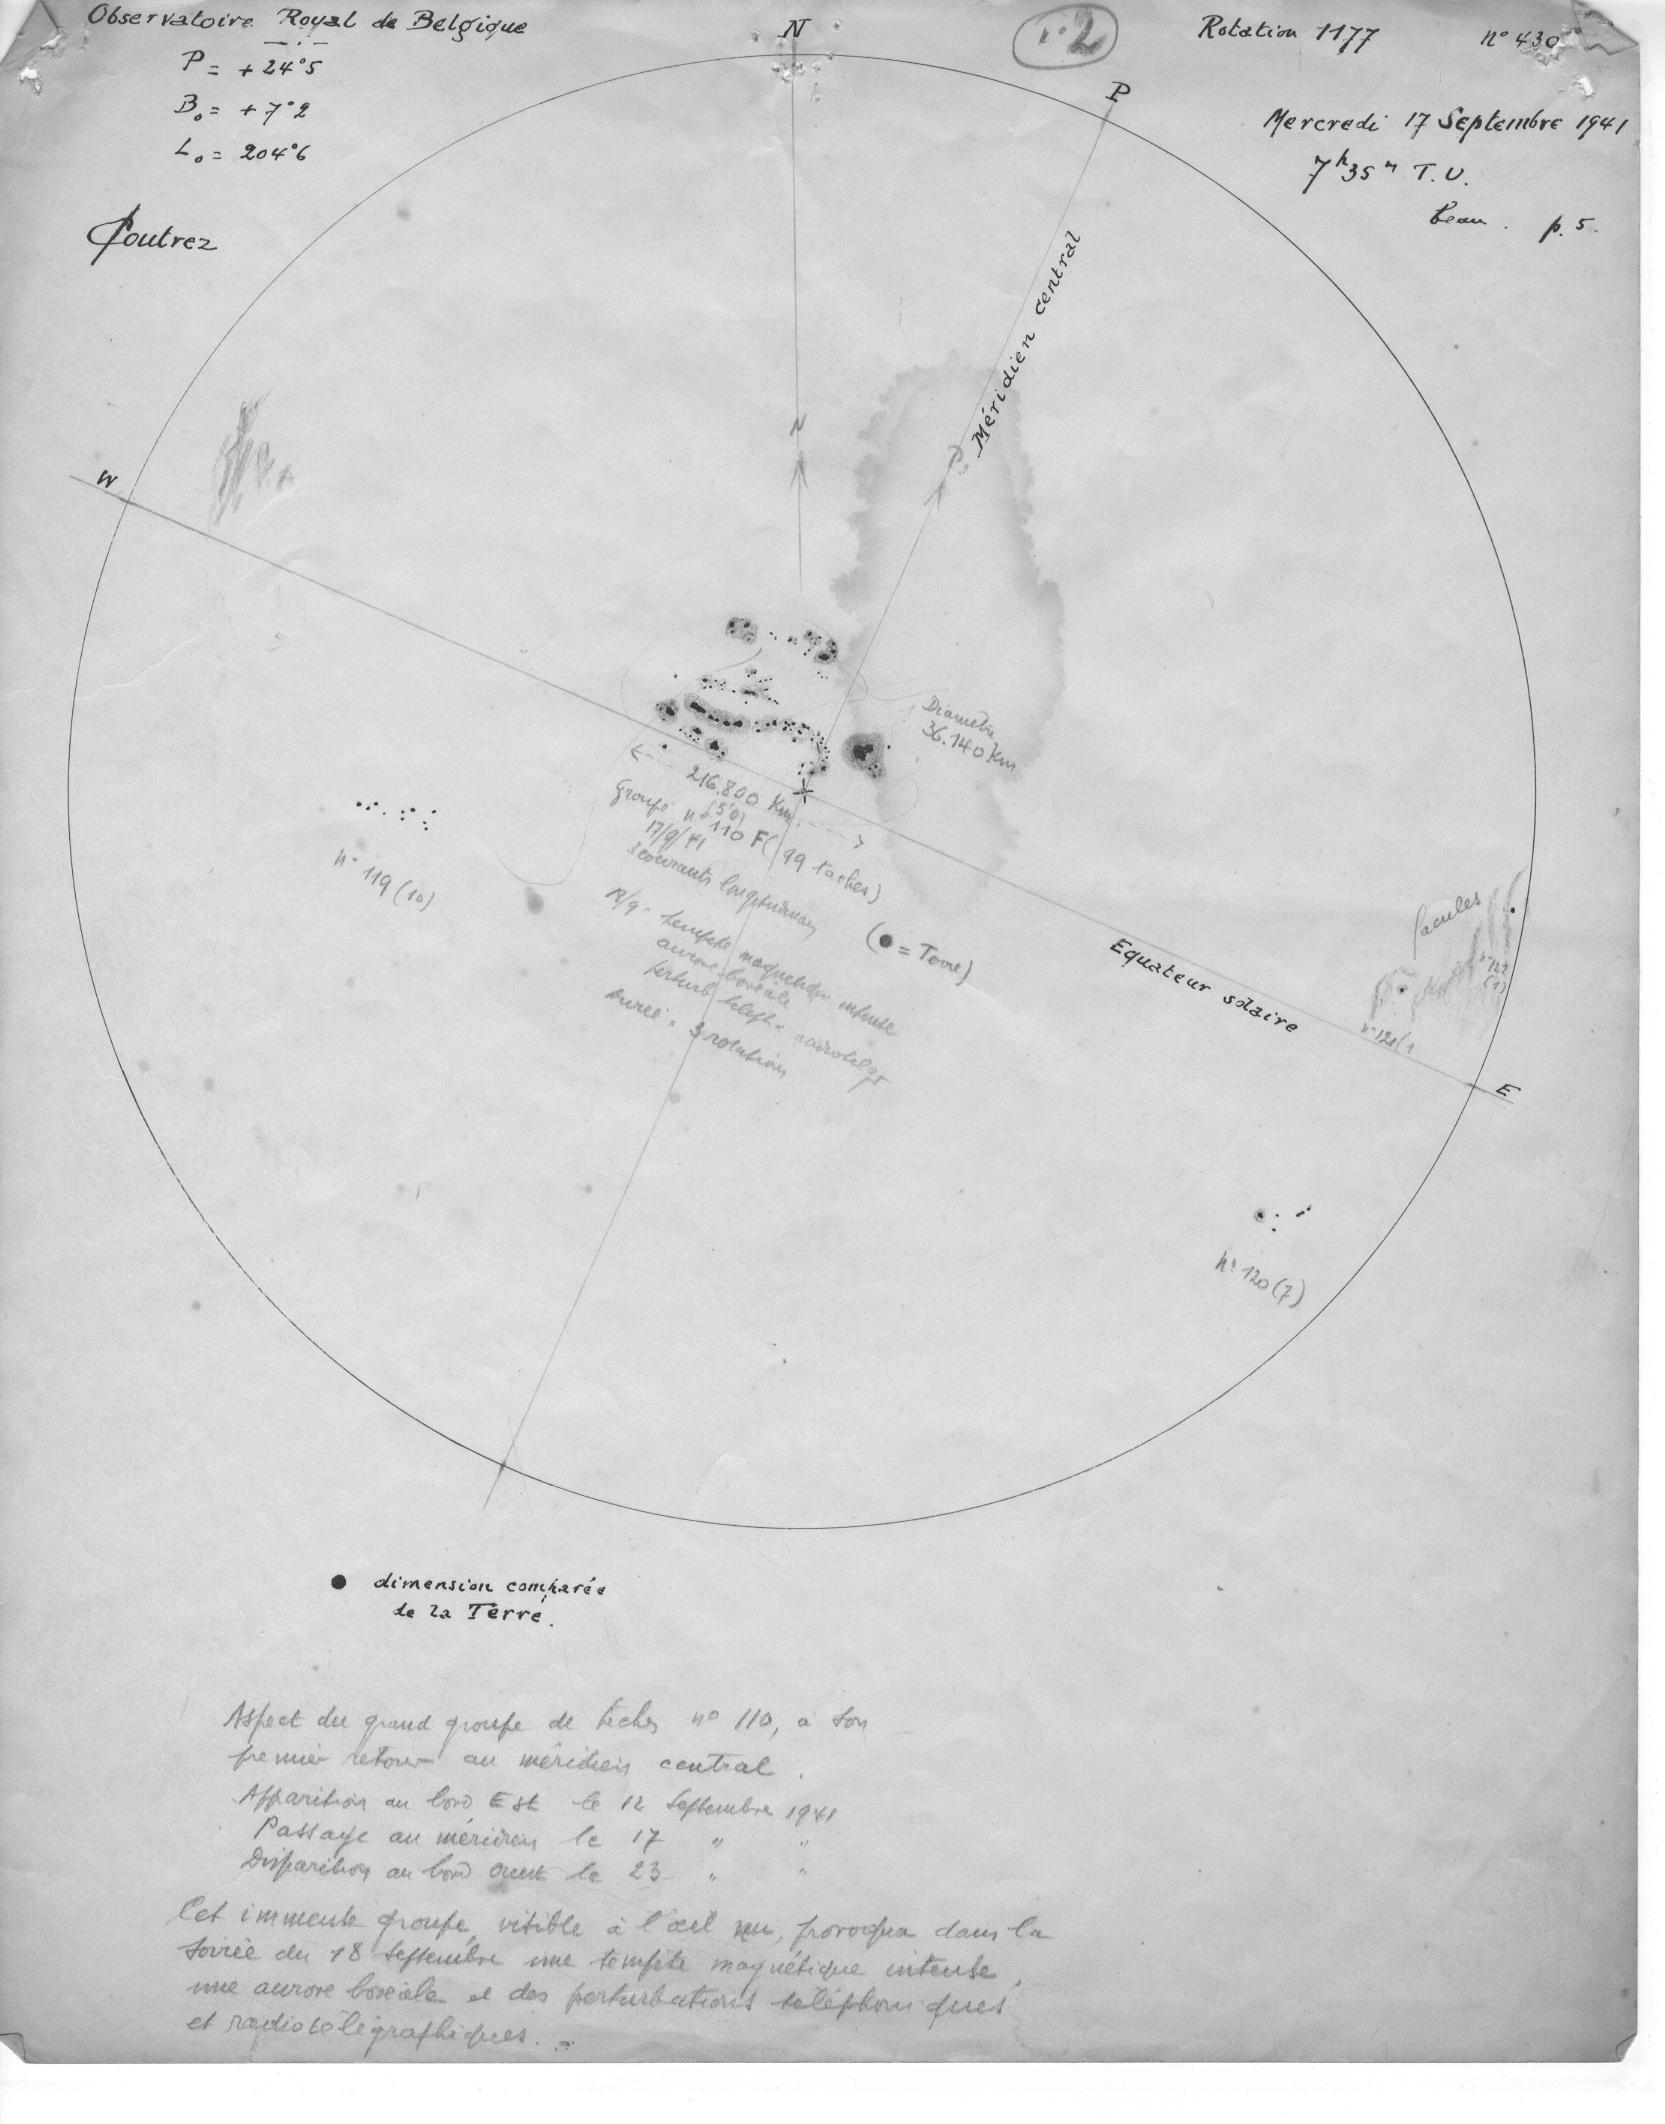 Observatoire Royal de Belgique
P = + 24°5
B₀ = + 7°2
L₀ = 204°6
Coutrez
N
n°2
Rotation 1177
n° 430
Mercredi 17 Septembre 1941
7h 35m T.U.
beau. p. 5.
P
Méridien central
N
P
W
Diamètre
36.140 Km
216.800 Km
(5'0)
Groupe n° 110 F (99 taches)
17/9/41
3 courants longitudinaux
tempête magnétique intense
aurore boréale
perturb. téleph.
Durée : 3 rotations
(● = Terre)
n° 119 (10)
Equateur solaire
facules
n° 122
(1)
n° 121 (1
E
n° 120 (7)
● dimension comparée
de la Terre.
Aspect du grand groupe de taches n° 110, à son
premier retour au méridien central.
Apparition au bord Est le 12 Septembre 1941
Passage au méridien le 17 " "
Disparition au bord Ouest le 23 " "
Cet immense groupe, visible à l'œil nu, provoqua dans la
soirée du 18 Septembre une tempête magnétique intense,
une aurore boréale et des perturbations téléphoniques
et radiotélégraphiques.